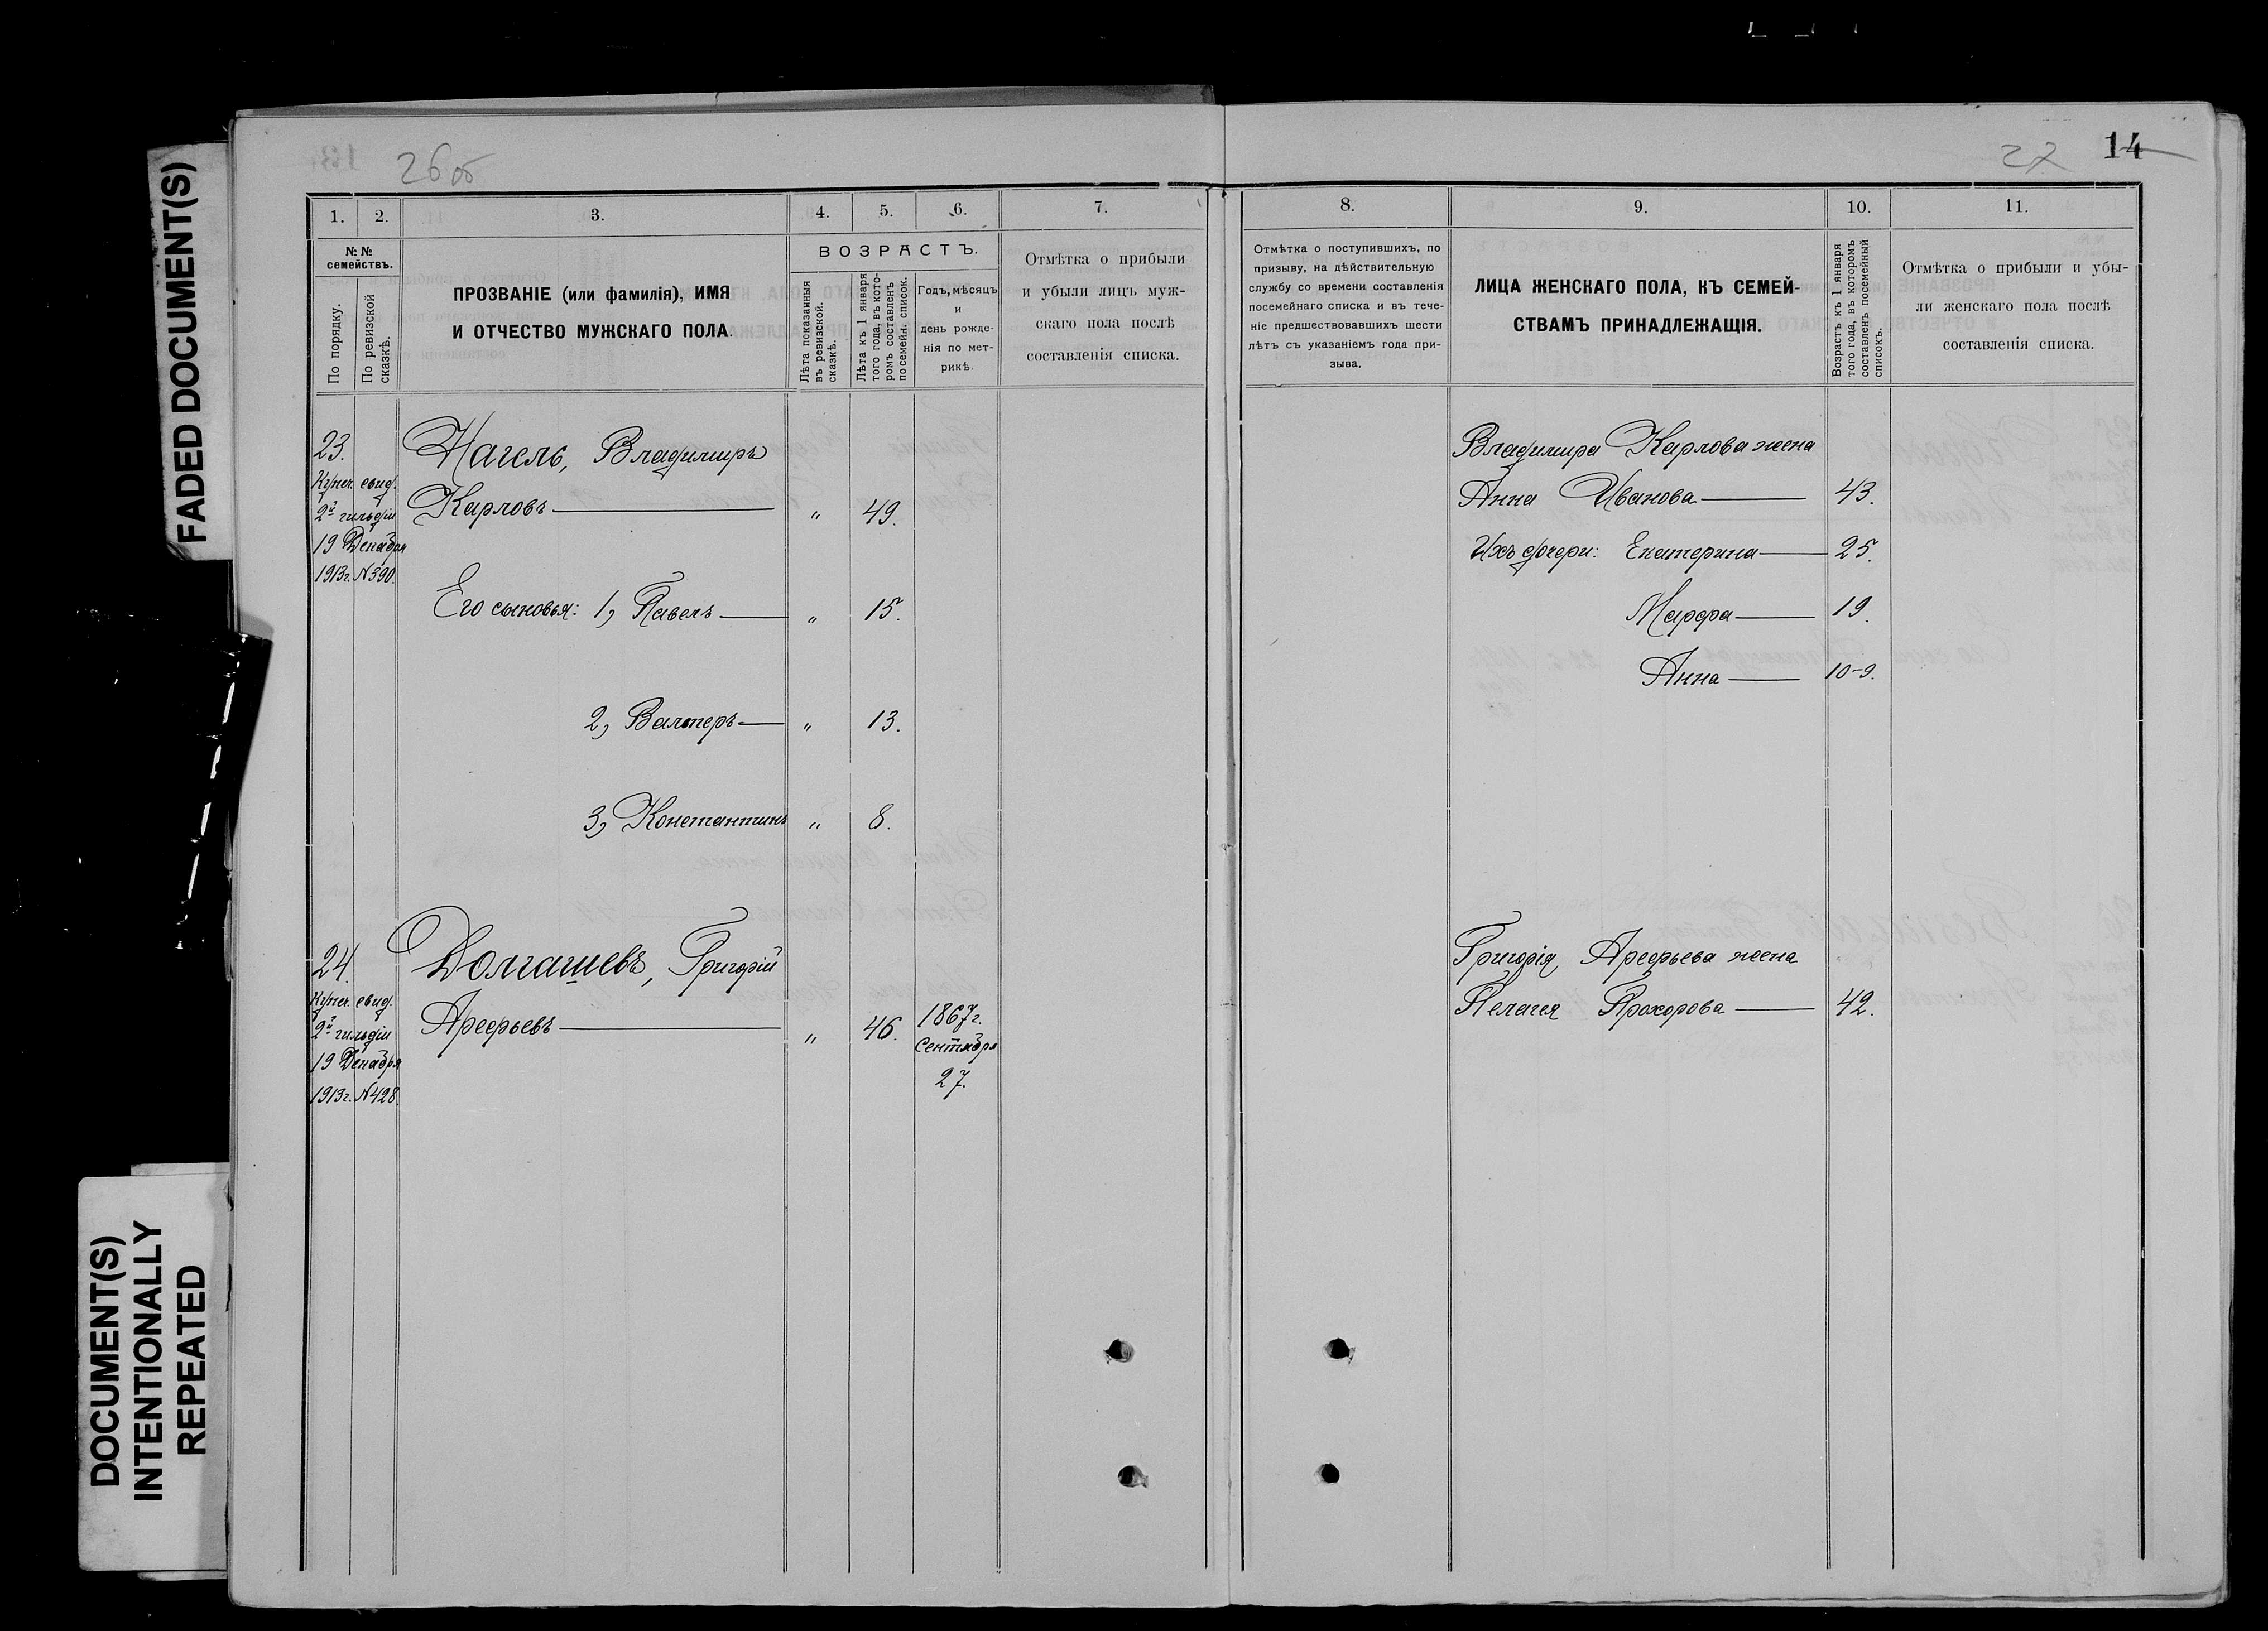 FADED DOCUMENT(S)
DOCUMENT(S)
INTENTIONALLY
REPEATED
26 об
1. 2. 3. 4. 5. 6. 7.
№ №
семействъ.
По порядку.
По ревизской
сказкѣ.
ПРОЗВАНІЕ (или фамилія), ИМЯ
И ОТЧЕСТВО МУЖСКАГО ПОЛА.
ВОЗРАСТЪ.
Лѣта показанныя
въ ревизской.
сказкѣ.
Лѣта къ 1 января
того года, въ кото-
ромъ составленъ
посемейн. список.
Годъ, мѣсяцъ
и
день рожде-
нія по мет-
рикѣ.
Отмѣтка о прибыли
и убыли лицъ муж-
скаго пола послѣ
составленія списка.
23.
Купеч. свид.
2й гильдіи
19 Декабря
1913г. N390.
Нагель, Владимиръ
Карловъ — „ 49.
Его сыновья: 1, Павелъ — „ 15.
2, Валтеръ — „ 13.
3, Константинъ „ 8.
24.
Купеч. свид.
2й гильдіи
19 Декабря
1913г. N428.
Долгашевъ, Григорій
Арефьевъ — „ 46. 1867г.
Сентября
27.
27 14
8. 9. 10. 11.
Отмѣтка о поступившихъ, по
призыву, на дѣйствительную
службу со времени составленія
посемейнаго списка и въ тече-
ніе предшествовавшихъ шести
лѣтъ съ указаніемъ года при-
зыва.
ЛИЦА ЖЕНСКАГО ПОЛА, КЪ СЕМЕЙ-
СТВАМЪ ПРИНАДЛЕЖАЩІЯ.
Возрастъ къ 1 января
того года, въ которомъ
составленъ посемейный
списокъ.
Отмѣтка о прибыли и убы-
ли женскаго пола послѣ
составленія списка.
Владимира Карлова жена
Анна Иванова — 43.
Ихъ дочери: Екатерина — 25.
Марфа — 19.
Анна — 10-9.
Григорія Арефьева жена
Пелагея Прохорова — 42.